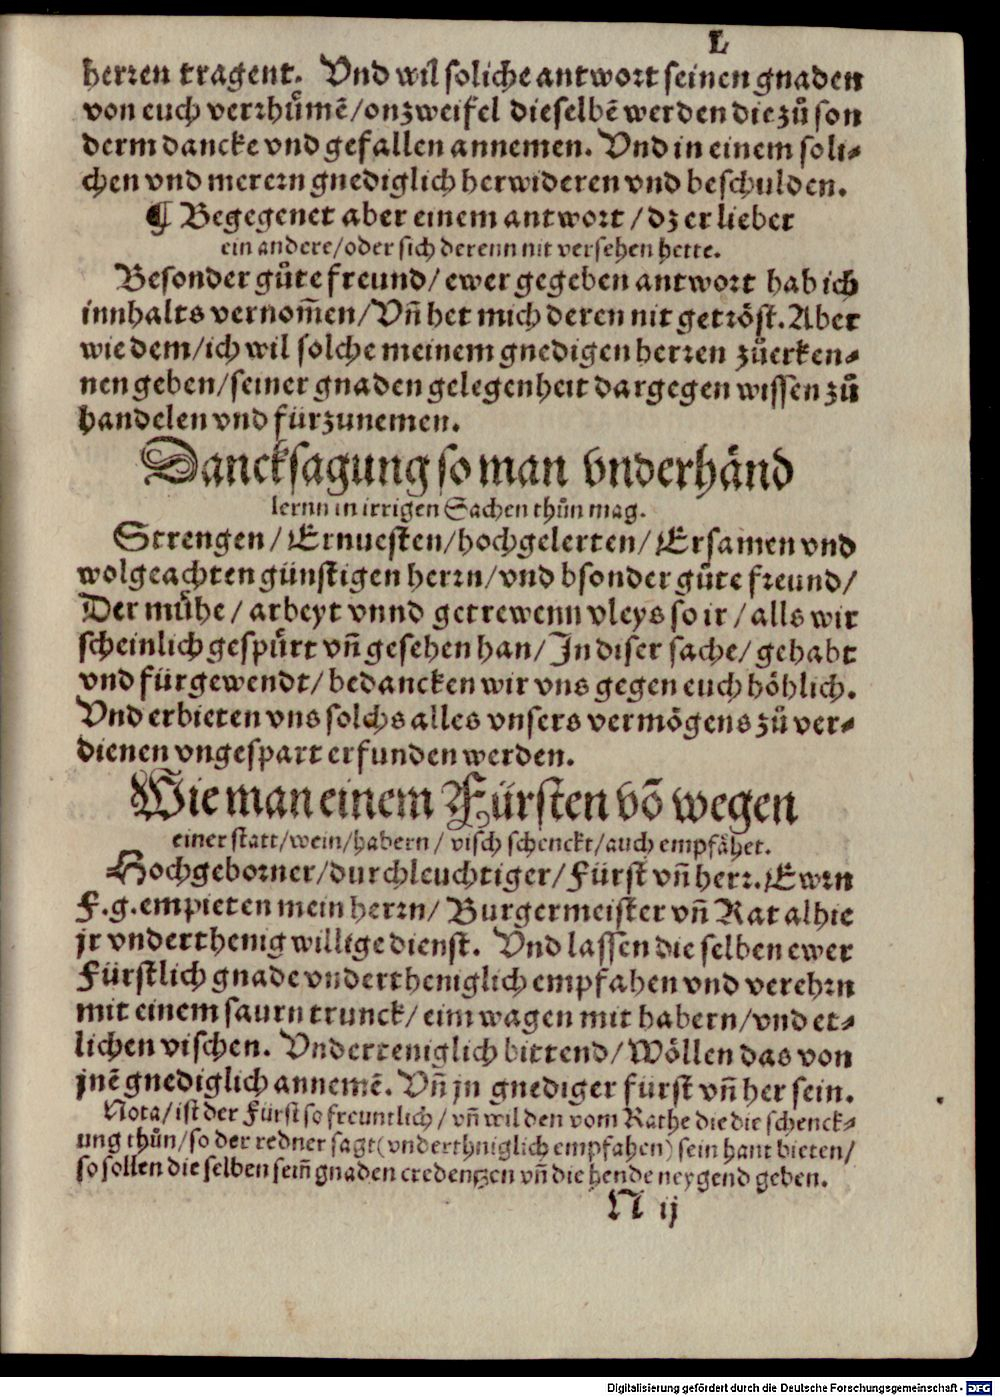 L
herren tragent. Vnd wil soliche antwort seinen gnaden
von euch verrhuͦmē/onzweifel dieselbē werden die zuͦ son
derm dancke vnd gefallen annemen. Vnd in einem soli-
chen vnd merern gnediglich herwideren vnd beschulden.
¶ Begegenet aber einem antwort/dz er lieber
ein andere/oder sich derenn nit versehen hette.
Besonder guͦte freund/ewer gegeben antwort hab ich
innhalts vernom̄en/Vn̄ het mich deren nit getröst. Aber
wie dem/ich wil solche meinem gnedigen herren zuͦerken-
nen geben/seiner gnaden gelegenheit dargegen wissen zuͦ
handelen vnd fürzunemen.
Dancksagung so man vnderhänd
lernn in irrigen Sachen thuͦn mag.
Strengen/Ernuesten/hochgelerten/Ersamen vnd
wolgeachten günstigen herrn/vnd bsonder guͦte freund/
Der muͤhe/arbeyt vnnd getrewenn vleys so ir/alls wir
scheinlich gespürt vn̄ gesehen han/In diser sache/gehabt
vnd fürgewendt/bedancken wir vns gegen euch höhlich.
Vnd erbieten vns solchs alles vnsers vermögens zuͦ ver-
dienen vngespart erfunden werden.
Wie man einem Fürsten vō wegen
einer statt/wein/habern/visch schenckt/auch empfähet.
Hochgeborner/durchleuchtiger/Fürst vn̄ herr. Ewrn
F.g.empieten mein herrn/Burgermeister vn̄ Rat alhie
jr vnderthenig willige dienst. Vnd lassen die selben ewer
Fürstlich gnade vndertheniglich empfahen vnd verehrn
mit einem saurn trunck/eim wagen mit habern/vnd et-
lichen vischen. Vnderteniglich bittend/Wöllen das von
jnē gnediglich annemē. Vn̄ jn gnediger fürst vn̄ her sein.
Nota/ist der Fürst so freuntlich/vn̄ wil den vom Rathe die die schenck-
ung thuͦn/so der redner sagt(vnderthniglich empfahen)sein hant bieten/
so sollen die selben sein̄ gnaden credentzen vn̄ die hende neygend geben.
N ij
Digitalisierung gefördert durch die Deutsche Forschungsgemeinschaft - DFG